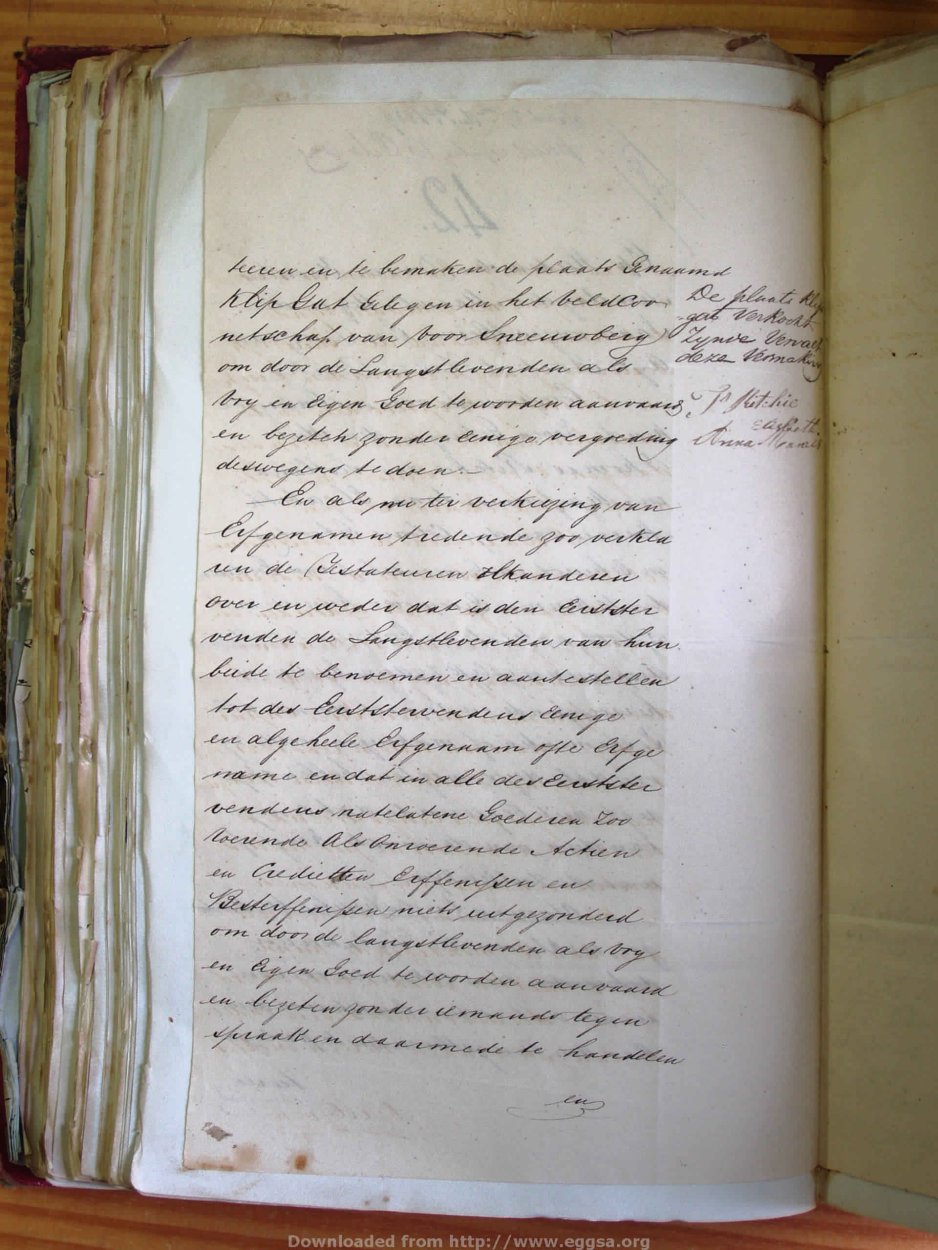 teeren en te bemaken de plaats Genaamd
Klip Gat Gelegen in het Veld Cor
netschap van Voor Sneeuwberg
om door de Langstlevenden als
Vry en Eigen Goed te worden aanvaard
en beziteh zonder eenige vergoeding
deswegens te doen —
En als nu ter verkiezing van
Erfgenamen tredende zoo verkla
ren de Testateuren Elkanderen
over en weder dat is den Eerstster
venden de Langstlevenden van hun
beide te benoemen en aantestellen
tot des Eerststervendens eenige
en algeheele Erfgenaam ofte Erfge
name en dat in alle des Eerstster
vendens natelatene Goederen Zoo
Roerende Als Onroerende Actien
en Credietten Erffenissen en
Besterffenissen niets uitgezonderd
om door de langstlevenden als Vry
en Eigen Goed te worden aanvaard
en bezeten zonder iemands tegen
spraak en daarmede te handelen
en
De plaats Klip
gat Verkocht
Zynde Vervalt
deze Vermaking
Js Ritchie
Elisabeth
Anna
42.
Downloaded from http://www.eggsa.org